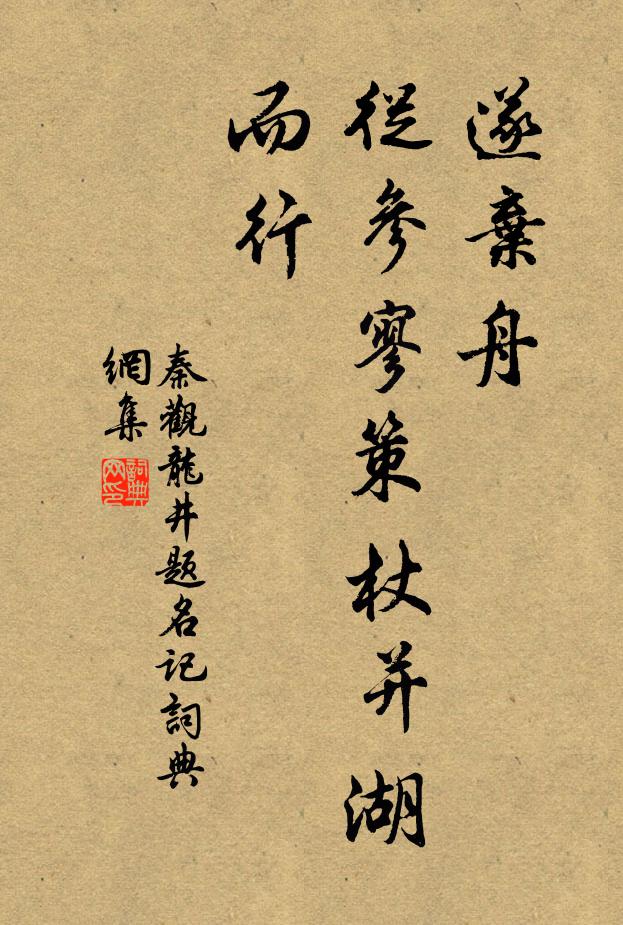 遂棄舟
從參寥策杖并湖
而行
秦觀龍井题名记詞典
網集
詞典网印